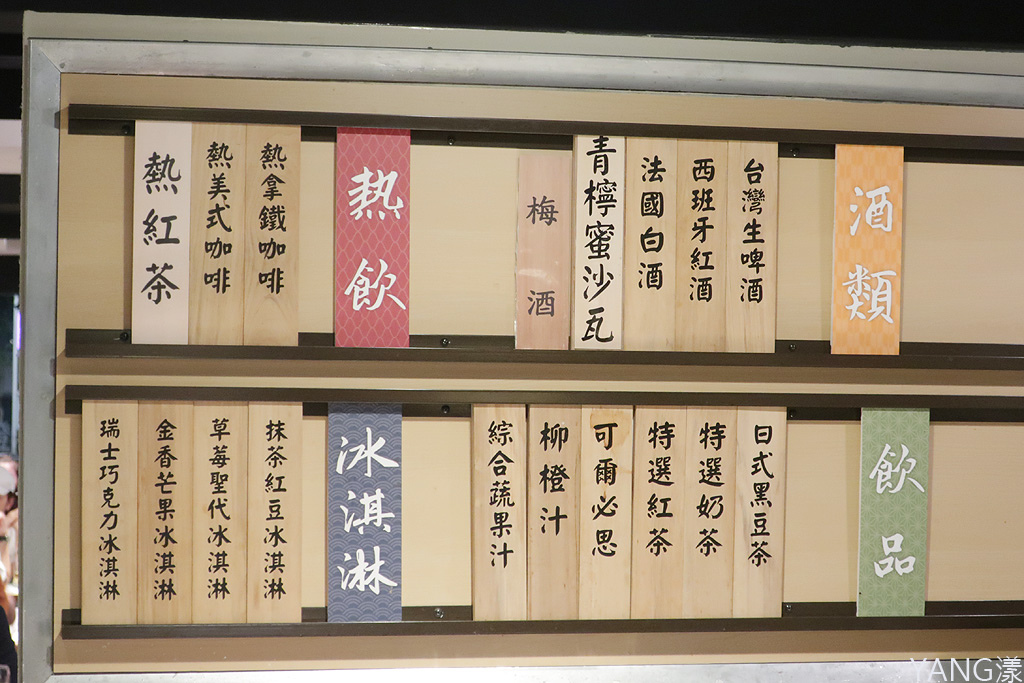 酒類
台灣生啤酒
西班牙紅酒
法國白酒
青檸蜜沙瓦
梅酒
熱飲
熱拿鐵咖啡
熱美式咖啡
熱紅茶
飲品
日式黑豆茶
特選奶茶
特選紅茶
可爾必思
柳橙汁
綜合蔬果汁
冰淇淋
抹茶紅豆冰淇淋
草莓聖代冰淇淋
金香芒果冰淇淋
瑞士巧克力冰淇淋
YANG漾